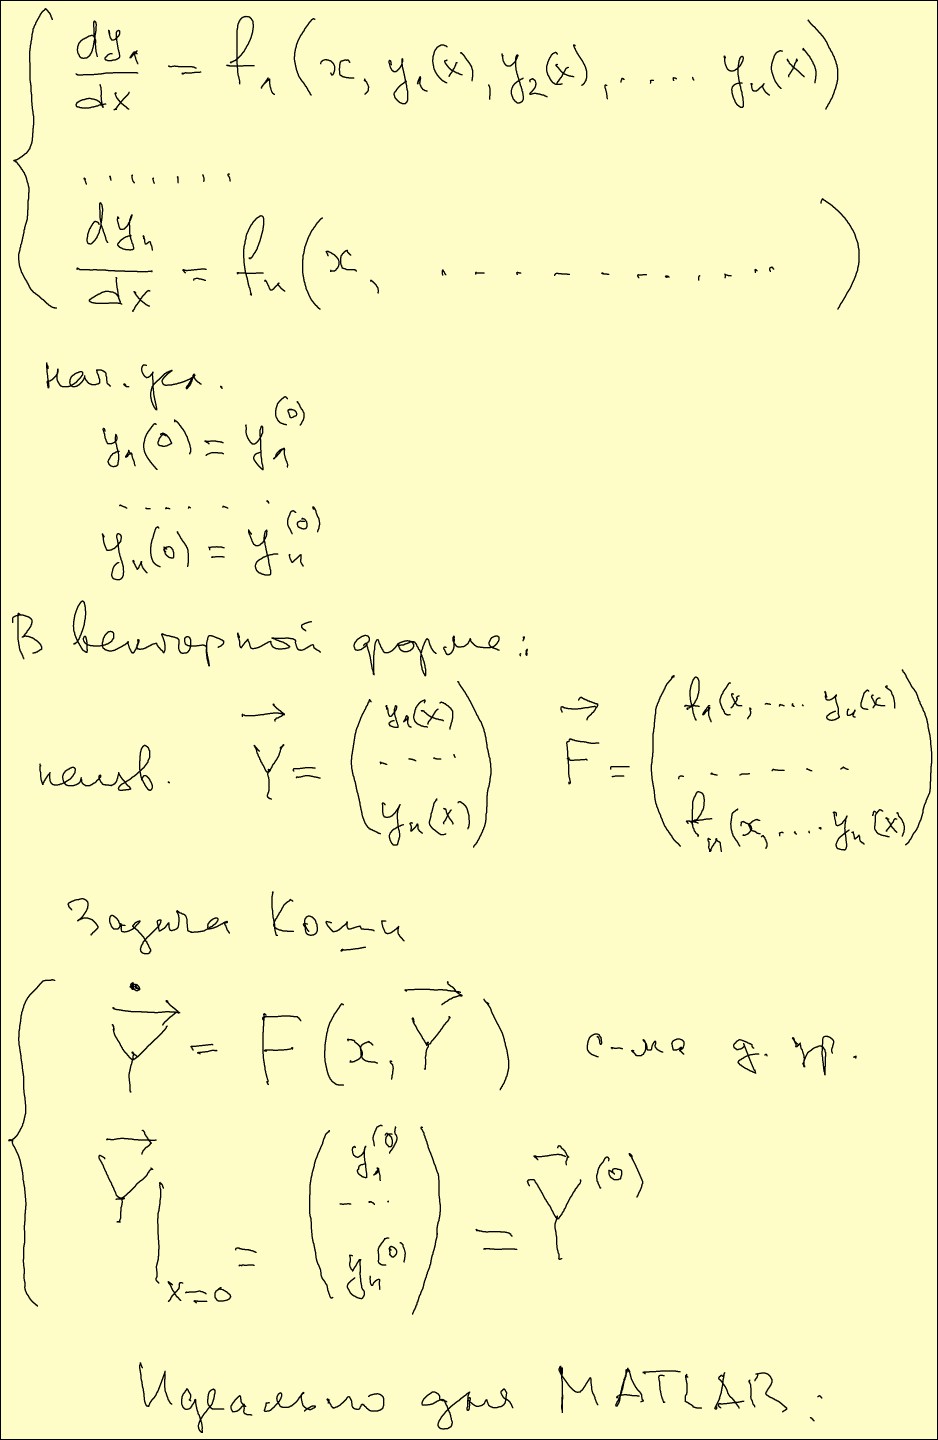 dy₁/dx = f₁(x, y₁(x), y₂(x), .... yₙ(x))
.......
dyₙ/dx = fₙ(x, ............)
нач. усл.
y₁(0) = y₁⁽⁰⁾
......
yₙ(0) = yₙ⁽⁰⁾
В векторной форме:
неизв. Y⃗ = (y₁(x) .... yₙ(x)) F⃗ = (f₁(x, .... yₙ(x) ...... fₙ(x, .... yₙ(x))
Задача Коши
Y⃗̇ = F(x, Y⃗) с-ма д. ур.
Y⃗|ₓ₌₀ = (y₁⁽⁰⁾ ... yₙ⁽⁰⁾) = Y⃗⁽⁰⁾
Идеально для MATLAB: